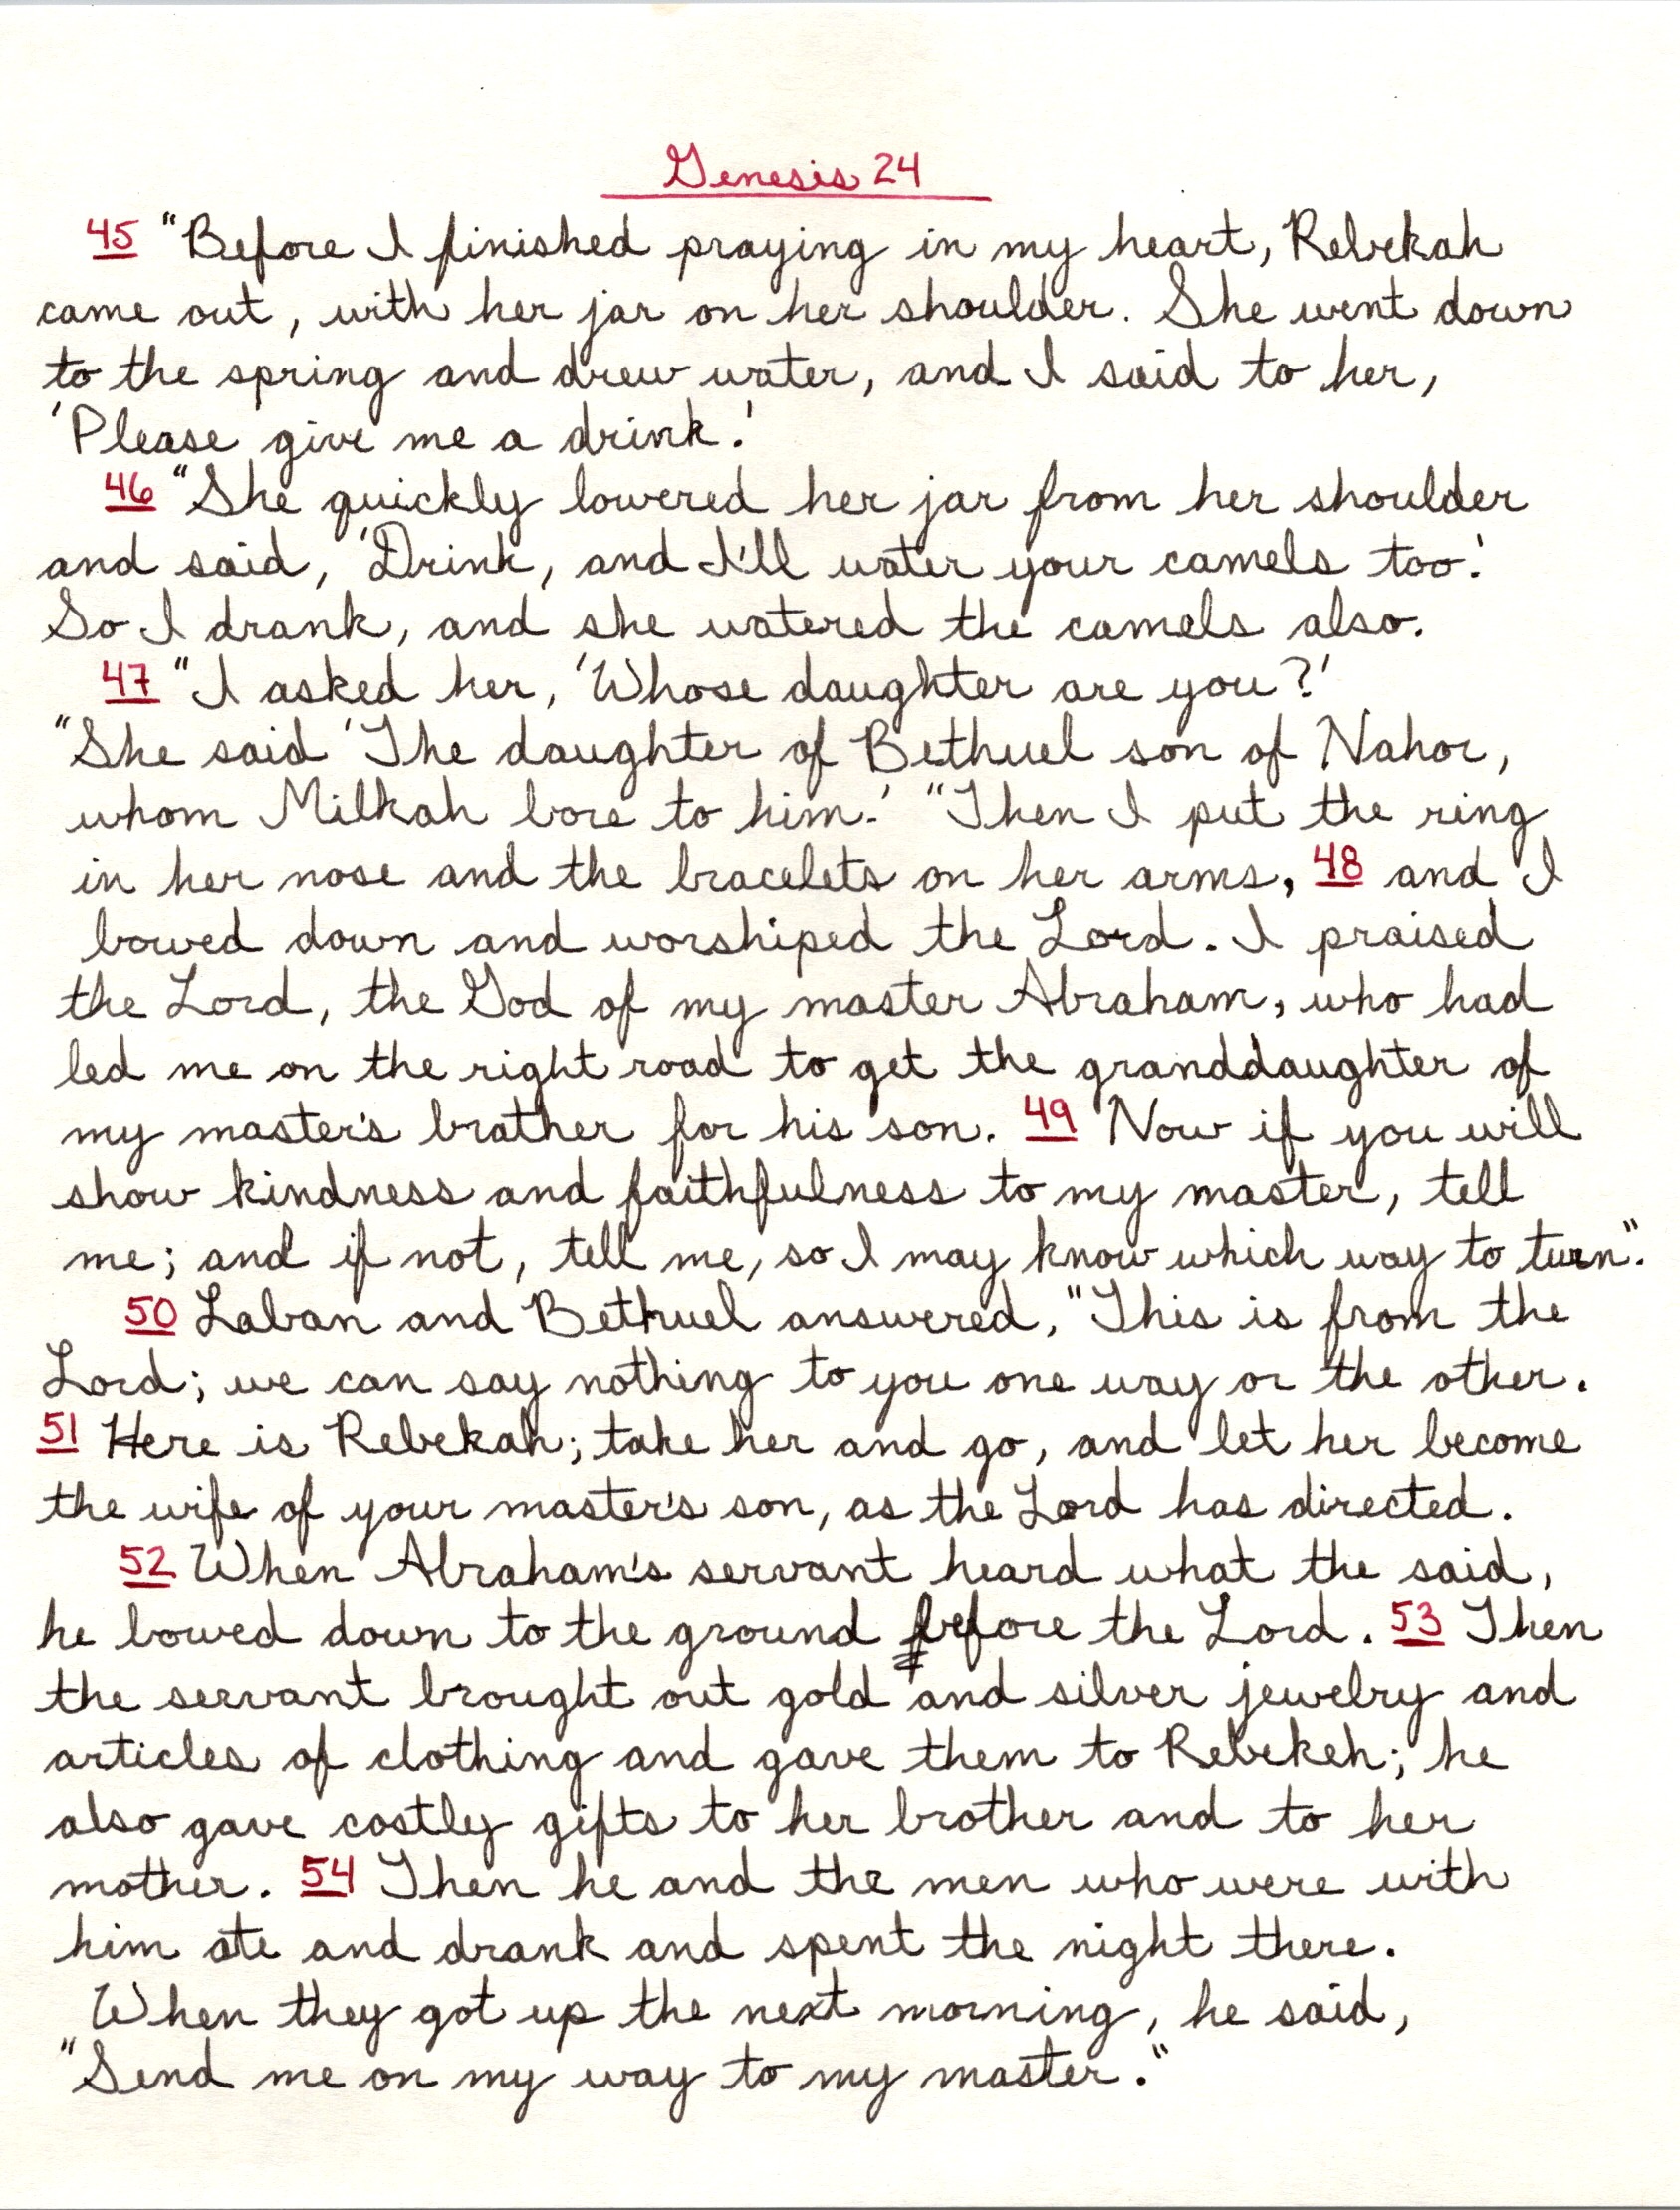 Genesis 24
45 "Before I finished praying in my heart, Rebekah
came out, with her jar on her shoulder. She went down
to the spring and drew water, and I said to her,
'Please give me a drink.'
46 "She quickly lowered her jar from her shoulder
and said, 'Drink, and I'll water your camels too.'
So I drank, and she watered the camels also.
47 "I asked her, 'Whose daughter are you?'
"She said 'The daughter of Bethuel son of Nahor,
whom Milkah bore to him.' "Then I put the ring
in her nose and the bracelets on her arms, 48 and I
bowed down and worshiped the Lord. I praised
the Lord, the God of my master Abraham, who had
led me on the right road to get the granddaughter of
my master's brother for his son. 49 Now if you will
show kindness and faithfulness to my master, tell
me; and if not, tell me, so I may know which way to turn."
50 Laban and Bethuel answered, "This is from the
Lord; we can say nothing to you one way or the other.
51 Here is Rebekah; take her and go, and let her become
the wife of your master's son, as the Lord has directed.
52 When Abraham's servant heard what the said,
he bowed down to the ground before the Lord. 53 Then
the servant brought out gold and silver jewelry and
articles of clothing and gave them to Rebekeh; he
also gave costly gifts to her brother and to her
mother. 54 Then he and the men who were with
him ate and drank and spent the night there.
When they got up the next morning, he said,
"Send me on my way to my master."